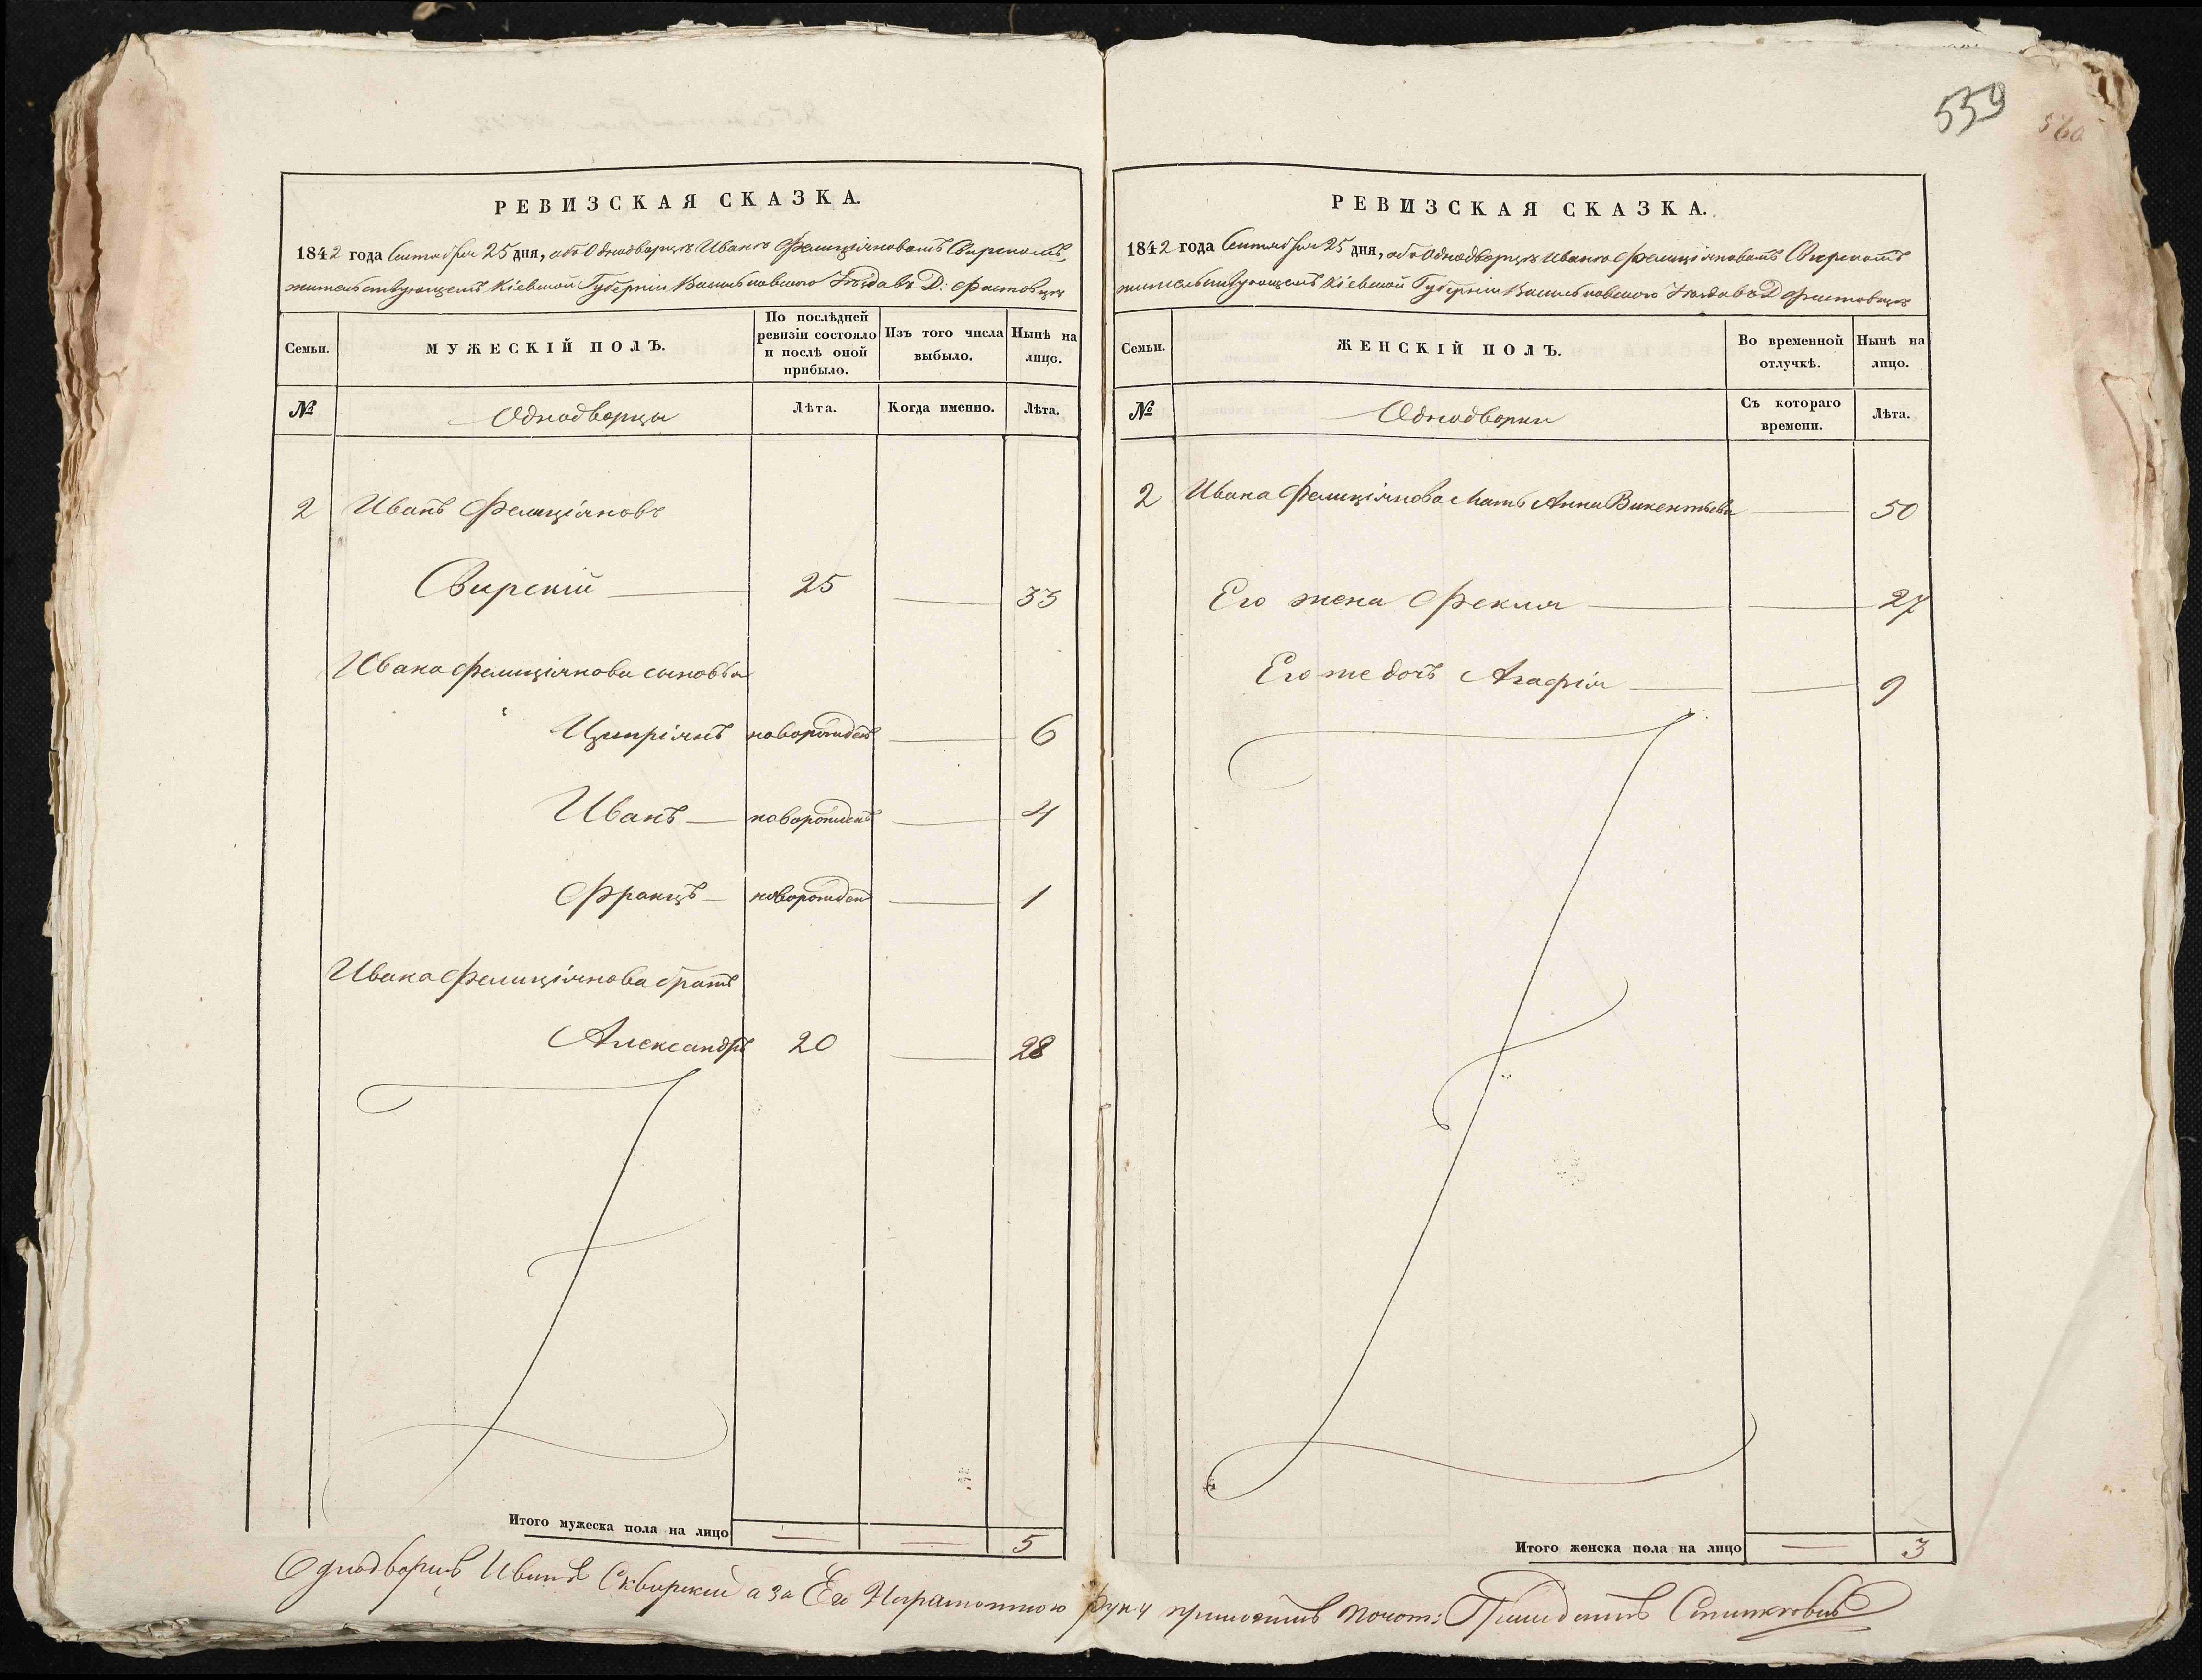 559
560
РЕВИЗСКАЯ СКАЗКА.
1842 года Сентября 25 дня, объ Однодворцѣ Иванѣ Фелиціяновомъ Свирскомъ,
жительствующемъ Кіевской Губерніи Васильковского Уѣзда въ Д: Фастовцѣ
Семьи.
МУЖЕСКІЙ ПОЛЪ.
По послѣдней ревизіи состояло и послѣ оной прибыло.
Изъ того числа выбыло.
Нынѣ на лицо.
№
Однодворцы
Лѣта.
Когда именно.
Лѣта.
2 Иванъ Фелиціяновъ
Свирскій 25 33
Ивана Фелиціянова сыновья
Ципріянъ новорожденъ 6
Иванъ новорожденъ 4
Францъ новорожден 1
Ивана Фелиціянова братъ
Александръ 20 28
Итого мужеска пола на лицо 5
РЕВИЗСКАЯ СКАЗКА.
1842 года Сентября 25 дня, объ Однодворцѣ Иванѣ Фелиціяновомъ Свирскомъ
жительствующемъ Кіевской Губерніи Васильковского Уѣзда въ Д Фастовцѣ
Семьи.
ЖЕНСКІЙ ПОЛЪ.
Во временной отлучкѣ.
Нынѣ на лицо.
№
Однодворки
Съ котораго времени.
Лѣта.
2 Ивана Фелиціянова Мать Анна Викентьева 50
Его жена Фекля 27
Его же дочь Агафія 9
Итого женска пола на лицо 3
Однодворецъ Иванъ Сквирский а за Его Неграмотного руку приложилъ